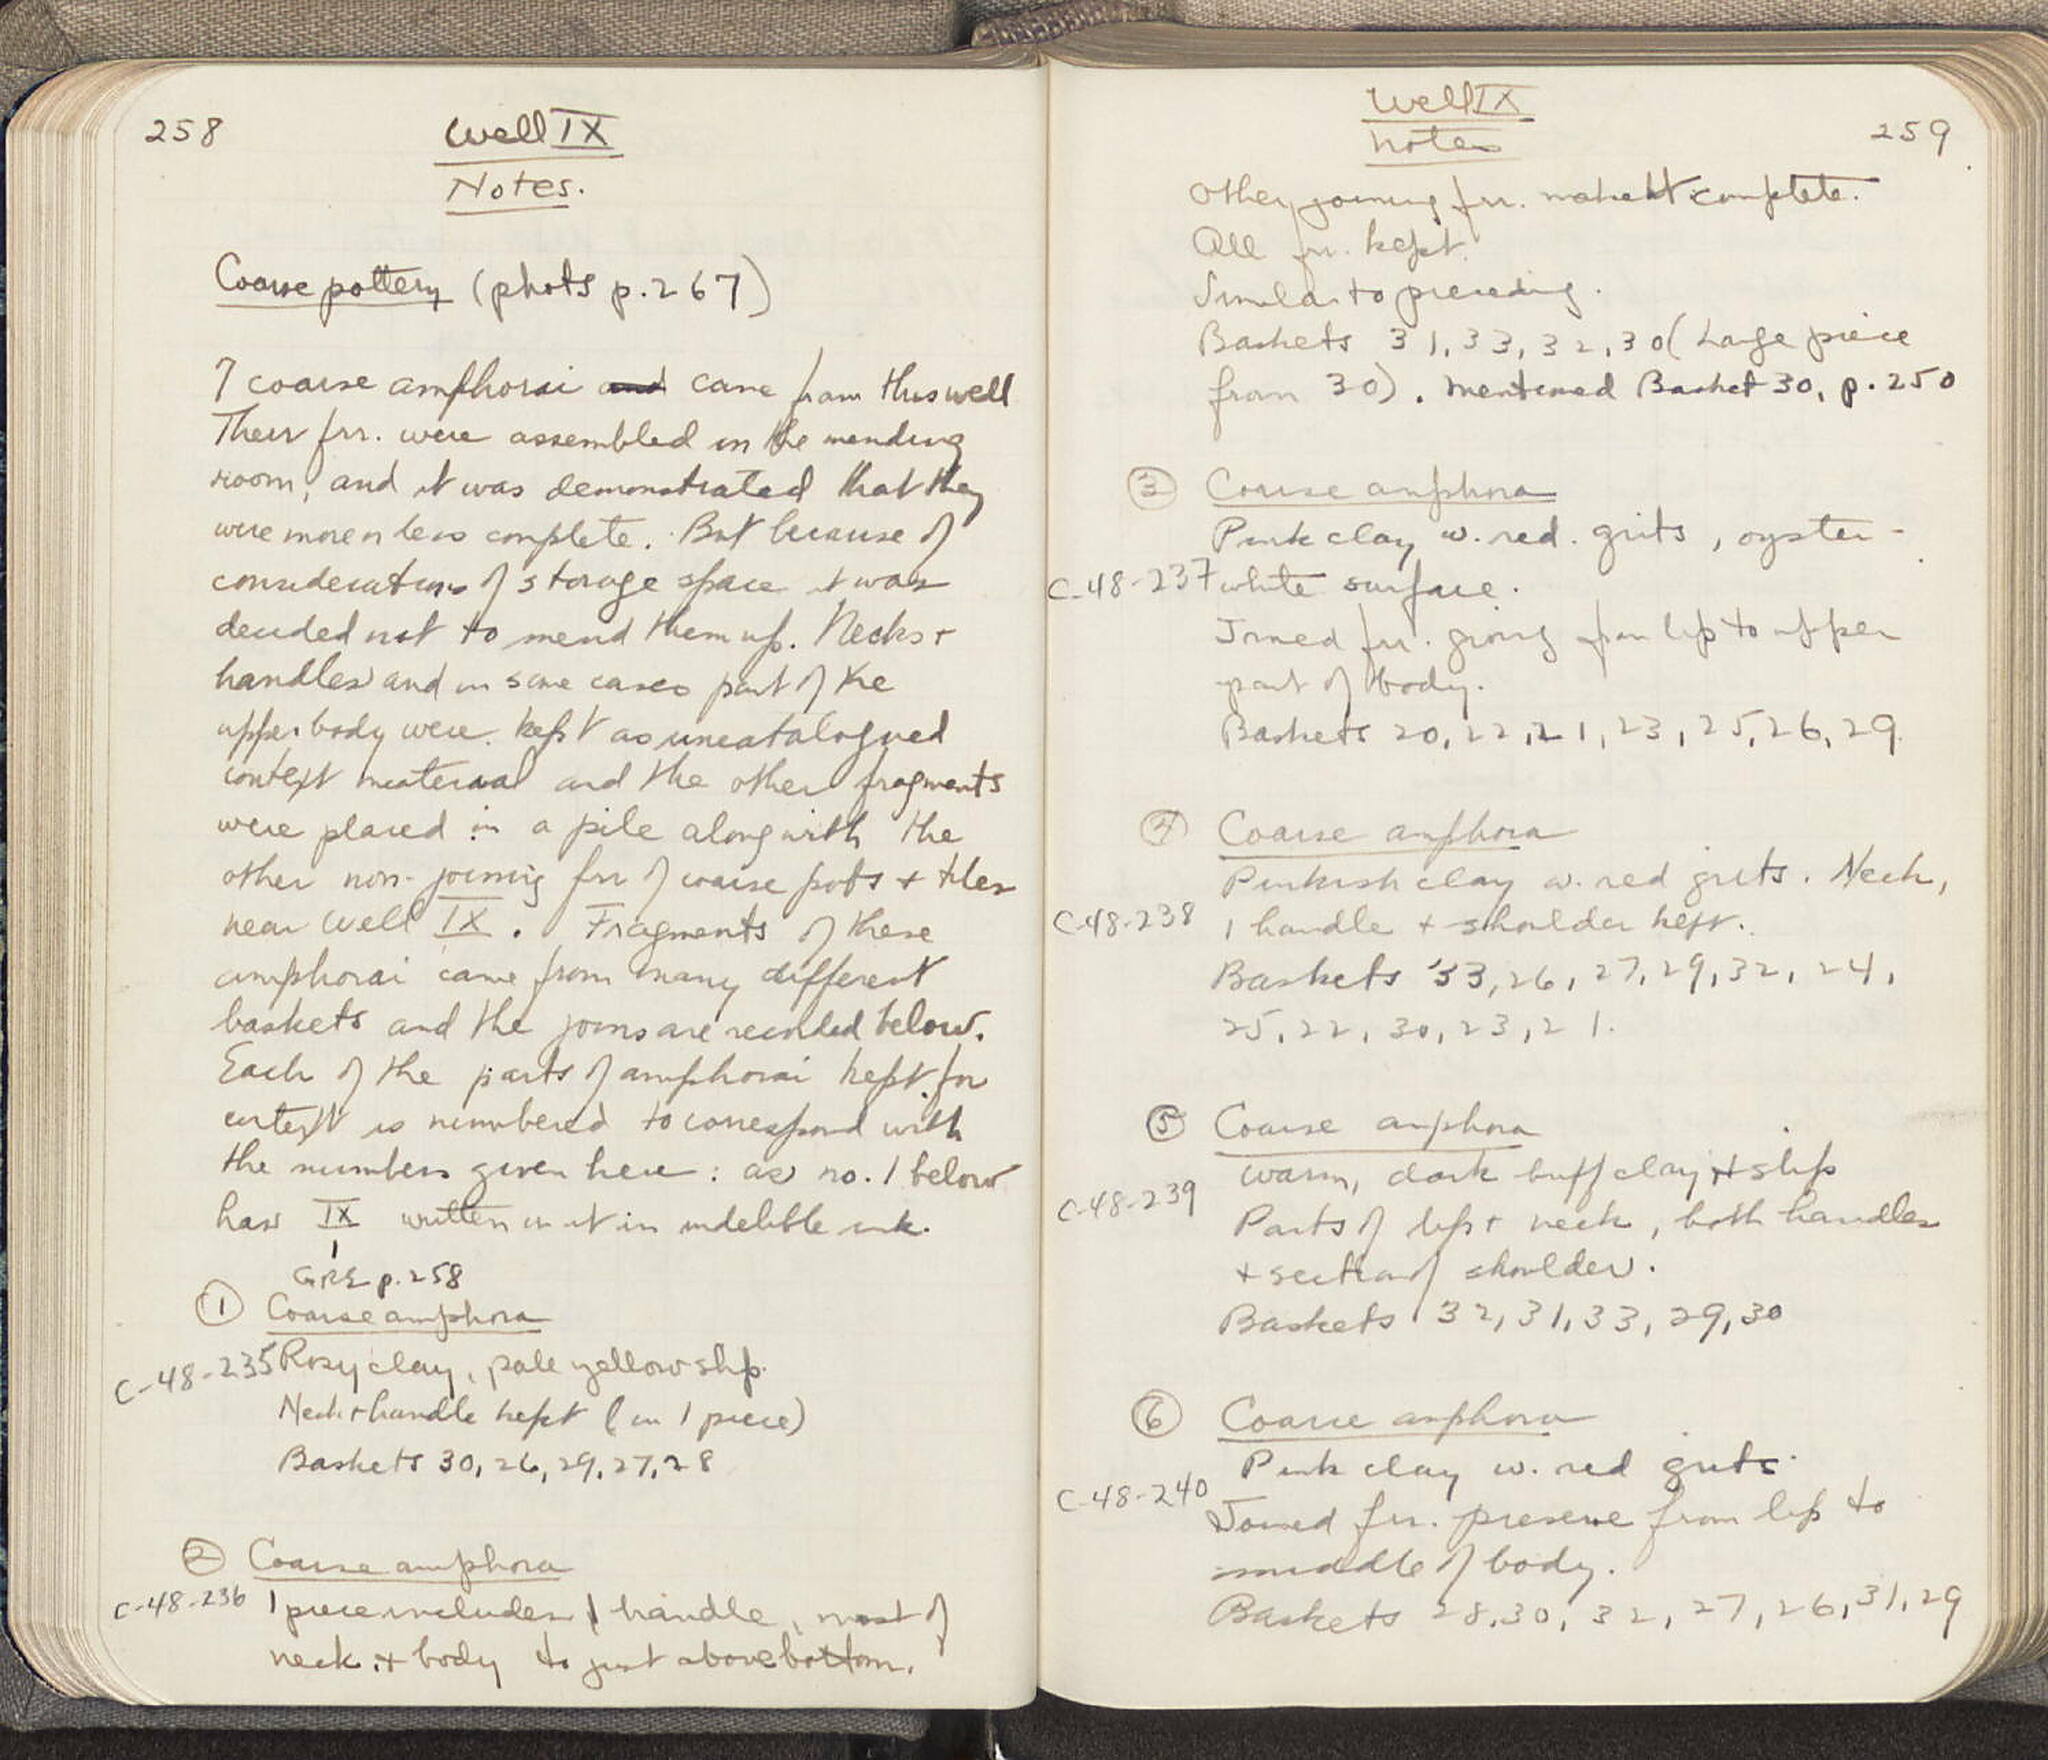 258
Well IX
Notes.
Coarse pottery (phots p. 267)
7 coarse amphorai and came from this well
Their frr. were assembled in the mending
room, and it was demonstrated that they
were more or less complete. But because of
considerations of storage space it was
decided not to mend them up. Necks +
handles and in some cases part of the
upper body were kept as uncatalogued
context material and the other fragments
were placed in a pile along with the
other non-joining frr of coarse pots + tiles
near Well IX. Fragments of these
amphorai came from many different
baskets and the joins are recorded below.
Each of the parts of amphorai kept for
context is numbered to correspond with
the numbers given here: as no. 1 below
has IX written on it in indelible ink.
1
GRE p. 258
① Coarse amphora
C-48-235 Rosy clay, pale yellow slip.
Neck + handle kept (in 1 piece)
Baskets 30, 26, 29, 27, 28
② Coarse amphora
C-48-236 1 piece includes 1 handle, most of
neck + body to just above bottom.
Well IX
Notes
259
Other joining frr. make it complete.
All frr. kept.
Similar to preceding.
Baskets 31, 33, 32, 30 (Large piece
from 30). Mentioned Basket 30, p. 250
③ Coarse amphora
Pink clay w. red. grits, oyster-
C-48-237 white surface.
Joined frr. going from lip to upper
part of body.
Baskets 20, 22, 21, 23, 25, 26, 29.
④ Coarse amphora
Pinkish clay w. red grits. Neck,
C-48-238 1 handle + shoulder kept.
Baskets 33, 26, 27, 29, 32, 24,
25, 22, 30, 23, 21.
⑤ Coarse amphora
warm, dark buff clay + slip
C-48-239
Parts of lip + neck, both handles
+ section of shoulder.
Baskets 32, 31, 33, 29, 30
⑥ Coarse amphora
Pink clay w. red grits.
C-48-240
Joined frr. preserve from lip to
middle of body.
Baskets 28, 30, 32, 27, 26, 31, 29